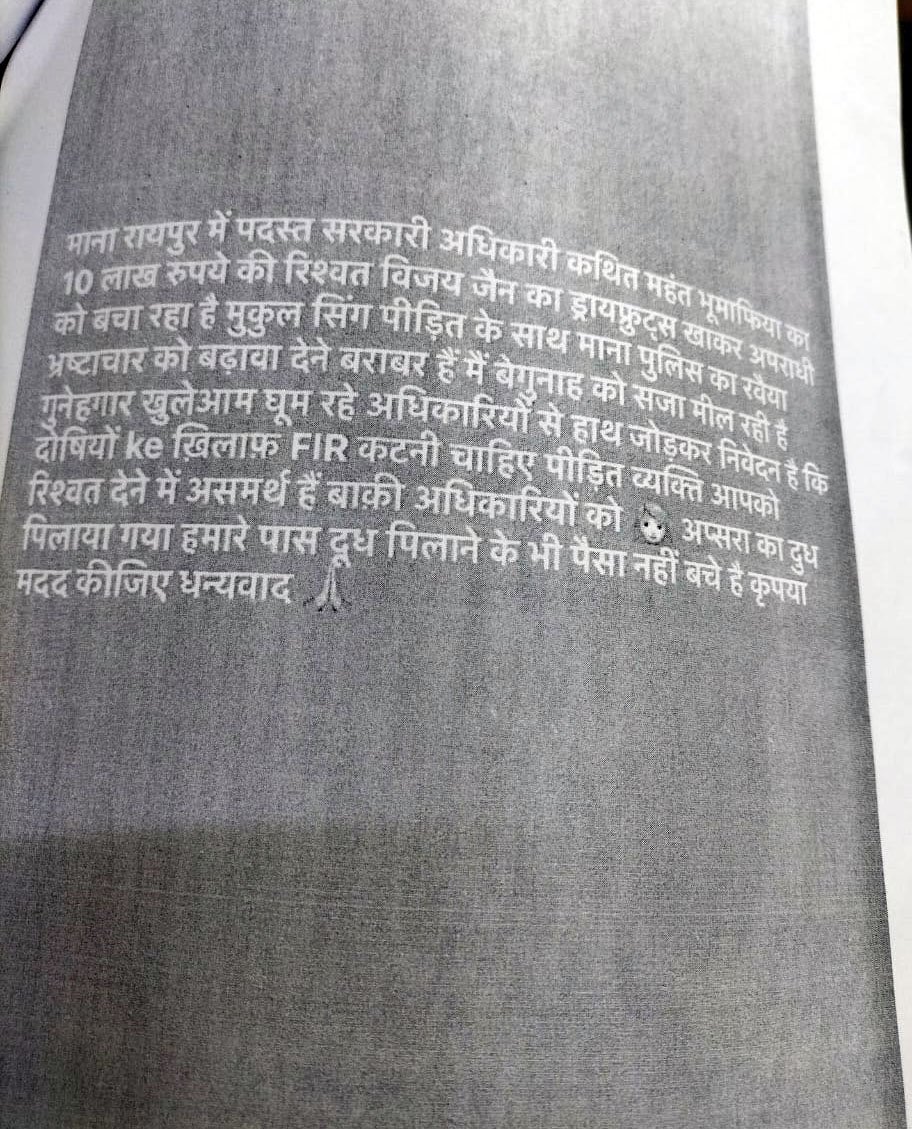 माना रायपुर में पदस्त सरकारी अधिकारी कथित महंत भूमाफिया का
10 लाख रुपये की रिश्वत विजय जैन का ड्रायफ्रुट्स खाकर अपराधी
को बचा रहा है मुकुल सिंग पीड़ित के साथ माना पुलिस का रवैया
भ्रष्टाचार को बढ़ावा देने बराबर हैं मैं बेगुनाह को सजा मील रही है
गुनेहगार खुलेआम घूम रहे अधिकारियों से हाथ जोड़कर निवेदन है कि
दोषियों ke ख़िलाफ़ FIR कटनी चाहिए पीड़ित व्यक्ति आपको
रिश्वत देने में असमर्थ हैं बाक़ी अधिकारियों को 👩 अप्सरा का दुध
पिलाया गया हमारे पास दूध पिलाने के भी पैसा नहीं बचे है कृपया
मदद कीजिए धन्यवाद 🙏